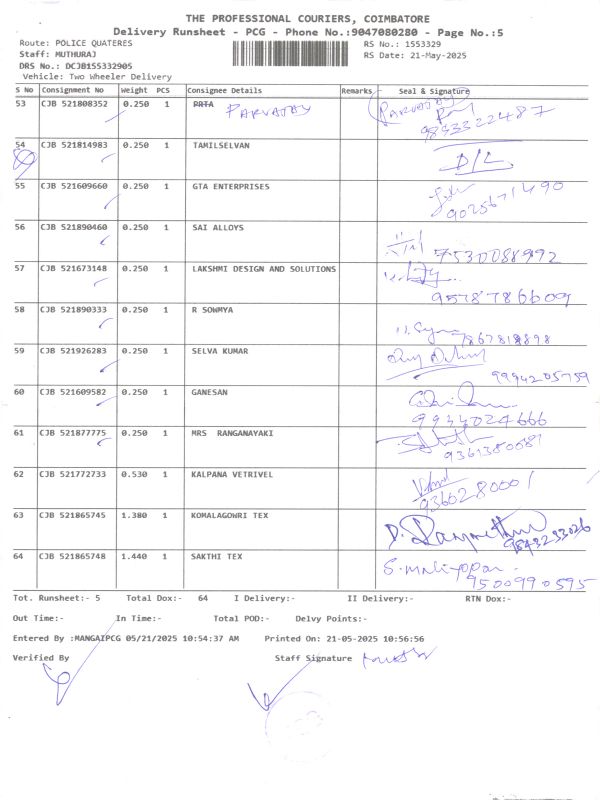 THE PROFESSIONAL COURIERS, COIMBATORE
Delivery Runsheet - PCG - Phone No.:9047080280 - Page No.:5
Route: POLICE QUATERES RS No.: 1553329
Staff: MUTHURAJ RS Date: 21-May-2025
DRS No.: DCJB155332905
Vehicle: Two Wheeler Delivery
S No Consignment No Weight PCS Consignee Details Remarks Seal & Signature
53 CJB 521808352 0.250 1 PRTA PARVATAY PARVATAY
9843322487
54 CJB 521814983 0.250 1 TAMILSELVAN D/L
55 CJB 521609660 0.250 1 GTA ENTERPRISES
9025671490
56 CJB 521890460 0.250 1 SAI ALLOYS
7530088992
57 CJB 521673148 0.250 1 LAKSHMI DESIGN AND SOLUTIONS
9578786609
58 CJB 521890333 0.250 1 R SOWMYA
7867818898
59 CJB 521926283 0.250 1 SELVA KUMAR
9994205759
60 CJB 521609582 0.250 1 GANESAN
9934024666
61 CJB 521877775 0.250 1 MRS RANGANAYAKI
9361380081
62 CJB 521772733 0.530 1 KALPANA VETRIVEL
9366280001
63 CJB 521865745 1.380 1 KOMALAGOWRI TEX
9843233026
64 CJB 521865748 1.440 1 SAKTHI TEX
9500990595
Tot. Runsheet:- 5 Total Dox:- 64 I Delivery:- II Delivery:- RTN Dox:-
Out Time:- In Time:- Total POD:- Delvy Points:-
Entered By :MANGAIPCG 05/21/2025 10:54:37 AM Printed On: 21-05-2025 10:56:56
Verified By Staff Signature